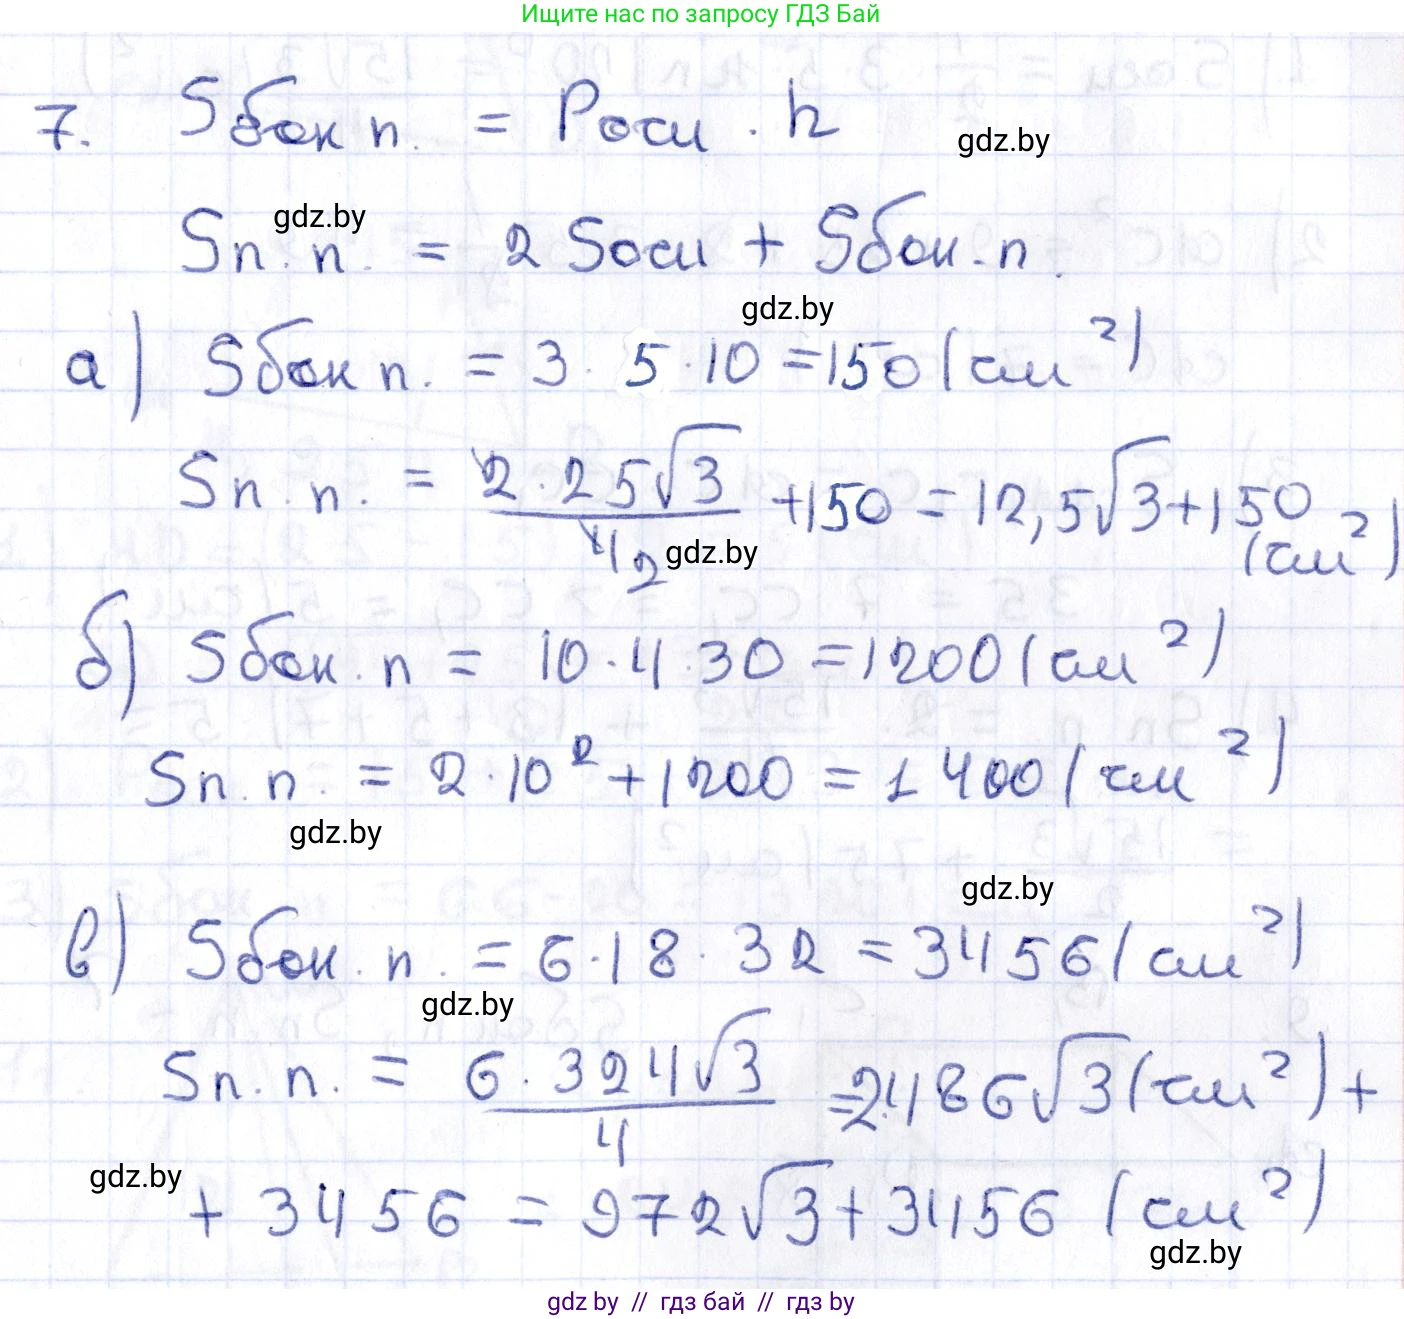 Ищите нас по запросу ГДЗ Бай
7. Sбок п. = Pосн · h
gdz.by
gdz.by
Sп.п. = 2 Sосн + Sбок.п.
gdz.by
а) Sбок п. = 3 · 5 · 10 = 150 (см²)
Sп.п. = 2 · 25√3 / 4 2 + 150 = 12,5√3 + 150 (см²)
gdz.by
б) Sбок.п = 10 · 4 · 30 = 1200 (см²)
Sп.п. = 2 · 10² + 1200 = 1400 (см²)
gdz.by
gdz.by
в) Sбок.п. = 6 · 18 · 32 = 3456 (см²)
gdz.by
Sп.п. = 6 · 324√3 / 4 = 2·486√3 (см²) +
gdz.by
+ 3456 = 972√3 + 3456 (см²)
gdz.by
gdz by // гдз бай // гдз by